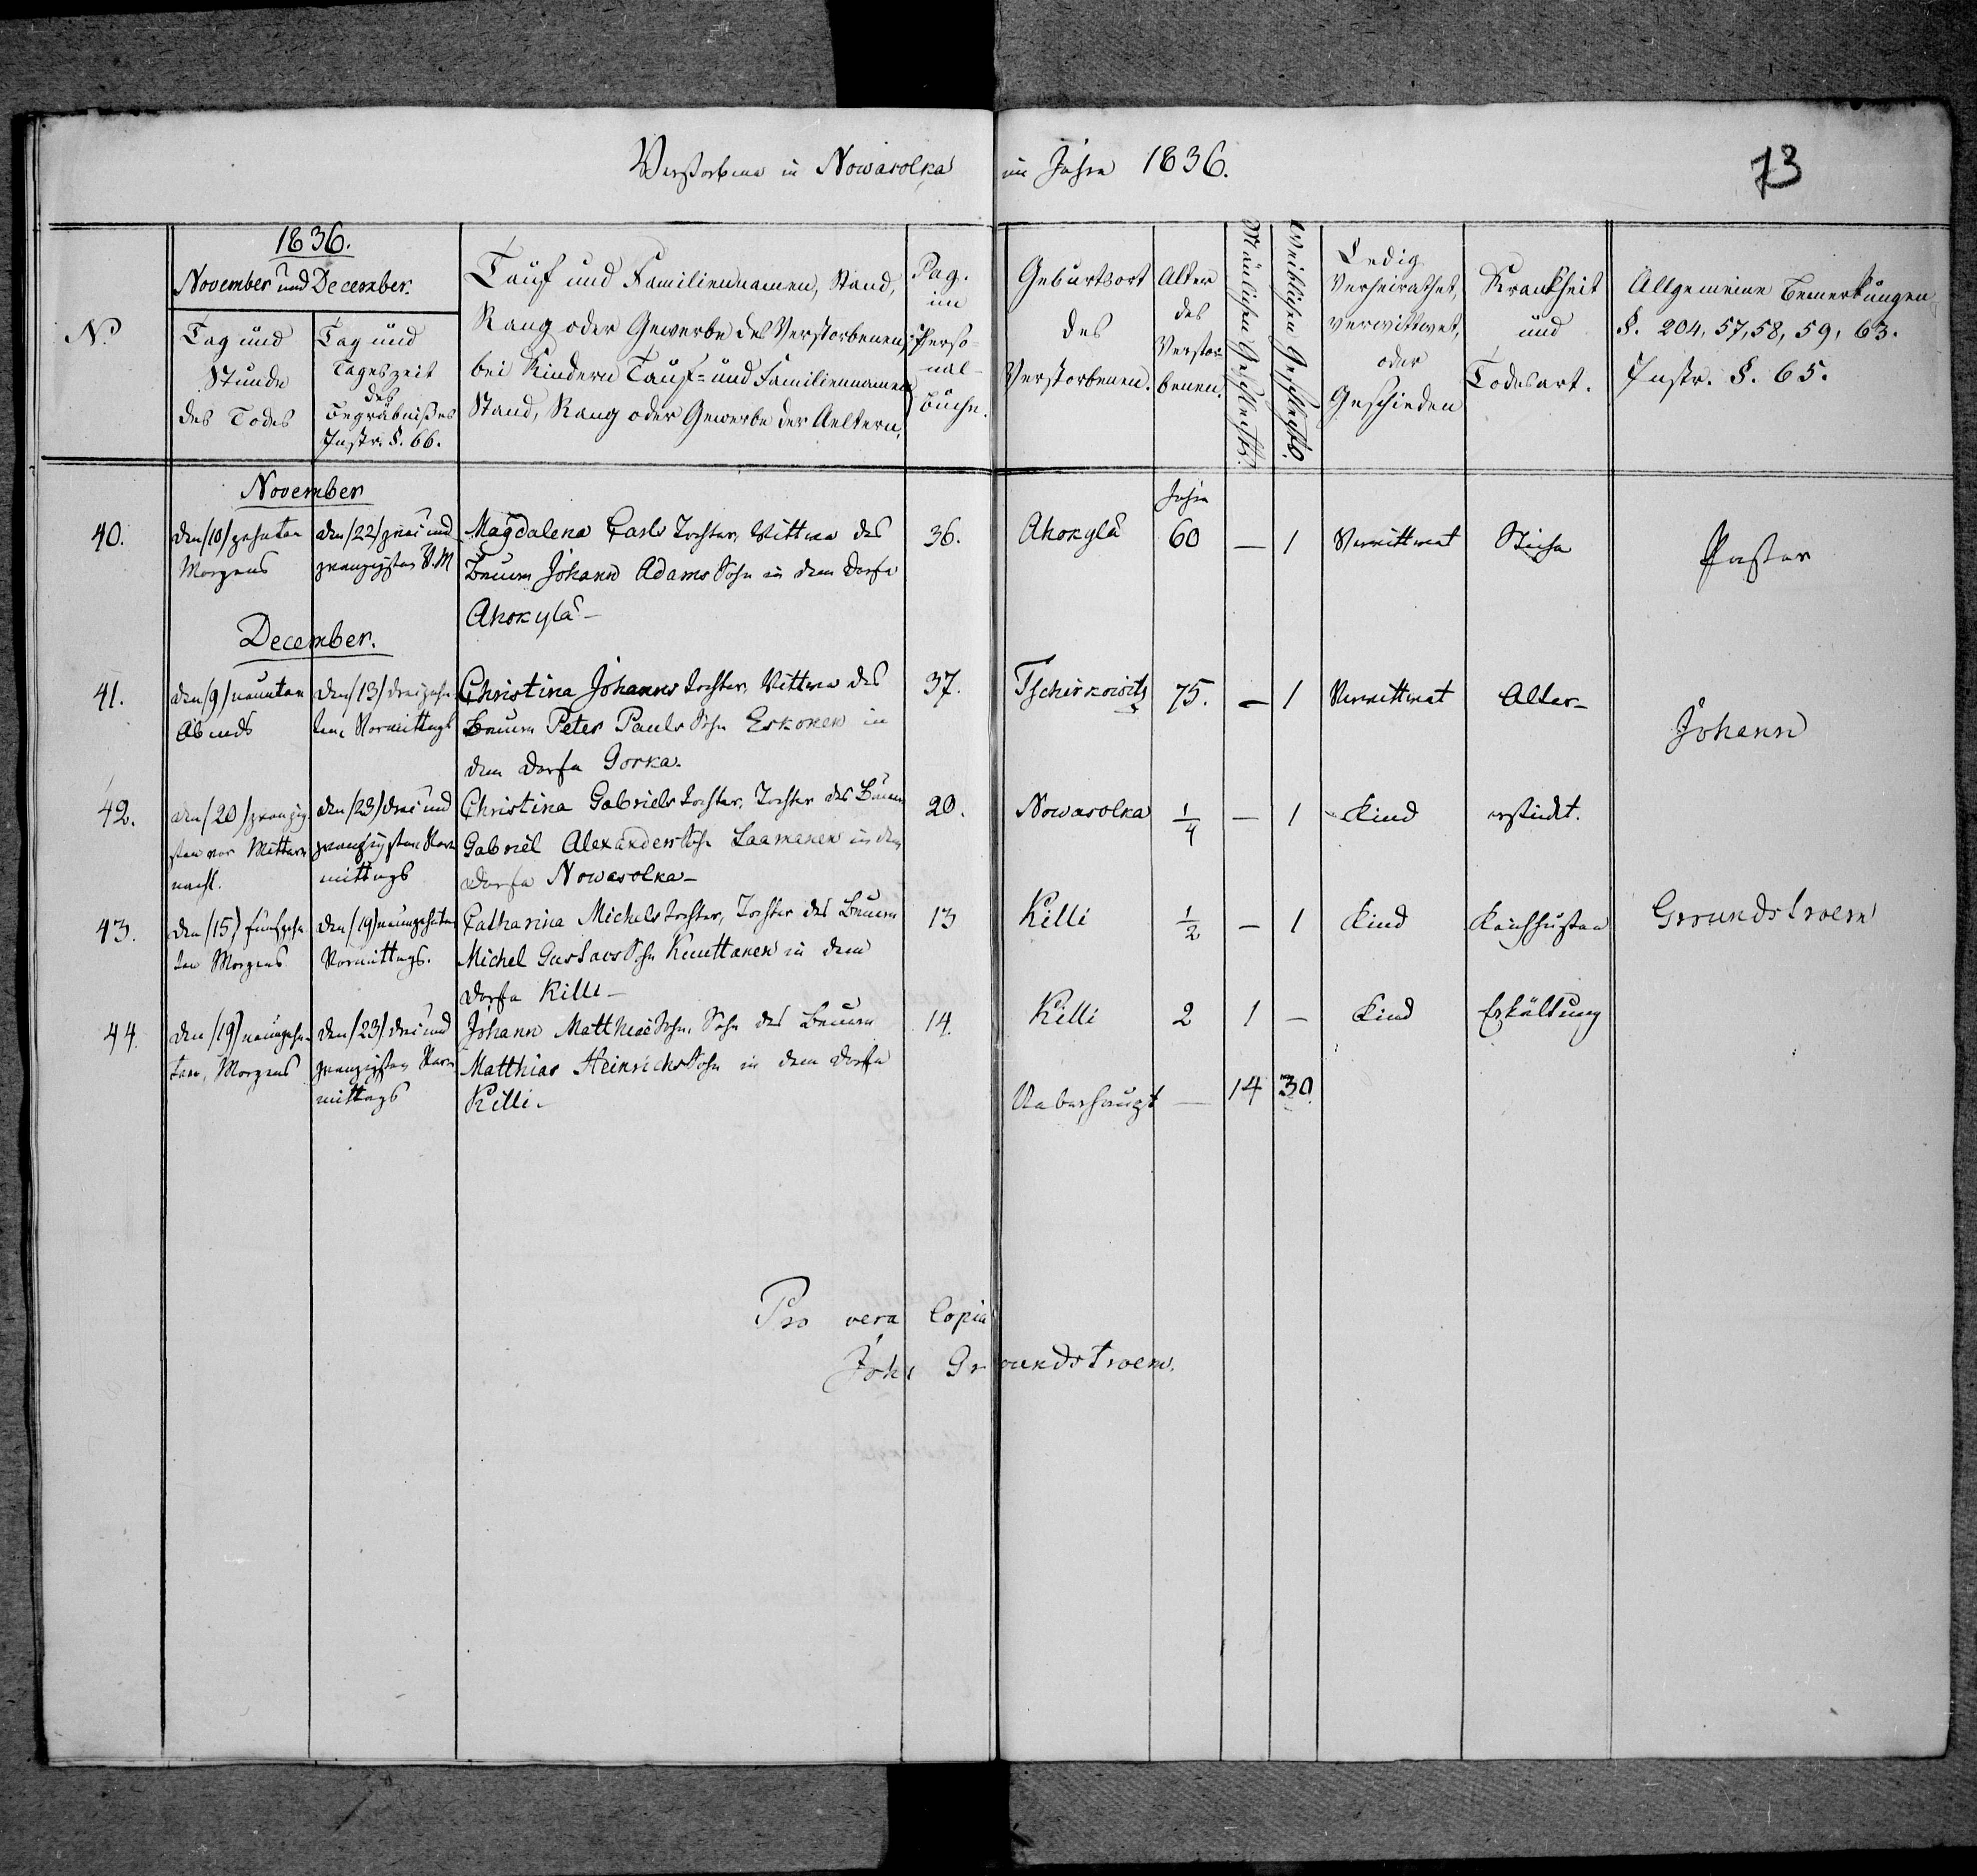 Verstorbene in Nowasolka im Jahre 1836.
73
N.
1836.
November und December.
Tag und
Stunde
des Todes
Tag und
Tageszeit
des
Begräbnißes
Instr. §. 66.
Tauf und Familiennamen, Stand,
Rang oder Gewerbe des Verstorbenen,
bei Kindern Tauf- und Familiennamen
Stand, Rang oder Gewerbe der Aeltern.
Pag.
im
Perso-
nal-
Buche.
Geburtsort
des
Verstorbenen.
Alter
des
Verstor-
benen.
Mänlichen Geschlechts.
Weiblichen Geschlechts.
Ledig
Verheirathet,
verwittwet,
oder
Geschieden
Krankheit
und
Todesart.
Allgemeine Bemerkungen
§. 204, 57, 58, 59, 63.
Instr. §. 65.
November
Jahre
40.
den (10) zehnten
Morgens
den (22) zwei und
zwanzigsten V. M
Magdalena Carls Tochter, Wittwe des
Bauern Johann Adams Sohn in dem Dorfe
Ahokylä –
36.
Ahokylä
60
–
1
Verwittwet
Pastor
December.
41.
den (9) neunten
Abends
den (13) dreizehn-
ten Vormittags
Christina Johanns Tochter, Wittwe des
Bauern Peter Pauls Sohn Eskonen in
dem Dorfe Gorka.
37.
Tschirkowitz
75.
–
1
Verwittwet
Alter –
Johann
42.
den (20) zwanzig-
sten vor Mitter-
nacht.
den (23) drei und
zwanzigsten Vor-
mittags
Christina Gabriels Tochter, Tochter des Bauern
Gabriel Alexanders Sohn Laamanen in dem
Dorfe Nowasolka –
20.
Nowasolka
1/4
–
1
Kind
erstickt.
43.
den (15) fünfzehn-
ten Morgens
den (19) neunzehnten
Vormittags.
Catharina Michels Tochter, Tochter des Bauern
Michel Gustavs Sohn Knuttanen in dem
Dorfe Killi –
13
Killi
1/2
–
1
Kind
Keichhusten
Grundstroem
44.
den (19) neunzehn-
ten, Morgens
den (23) drei und
zwanzigsten Vor-
mittags
Johann Matthias Sohn, Sohn des Bauern
Matthias Heinrichs Sohn in dem Dorfe
Killi –
14.
Killi
2
1
–
Kind
Erkältung
Ueberhaupt –
14
30.
Pro vera Copia
Joh: Grundstroem.